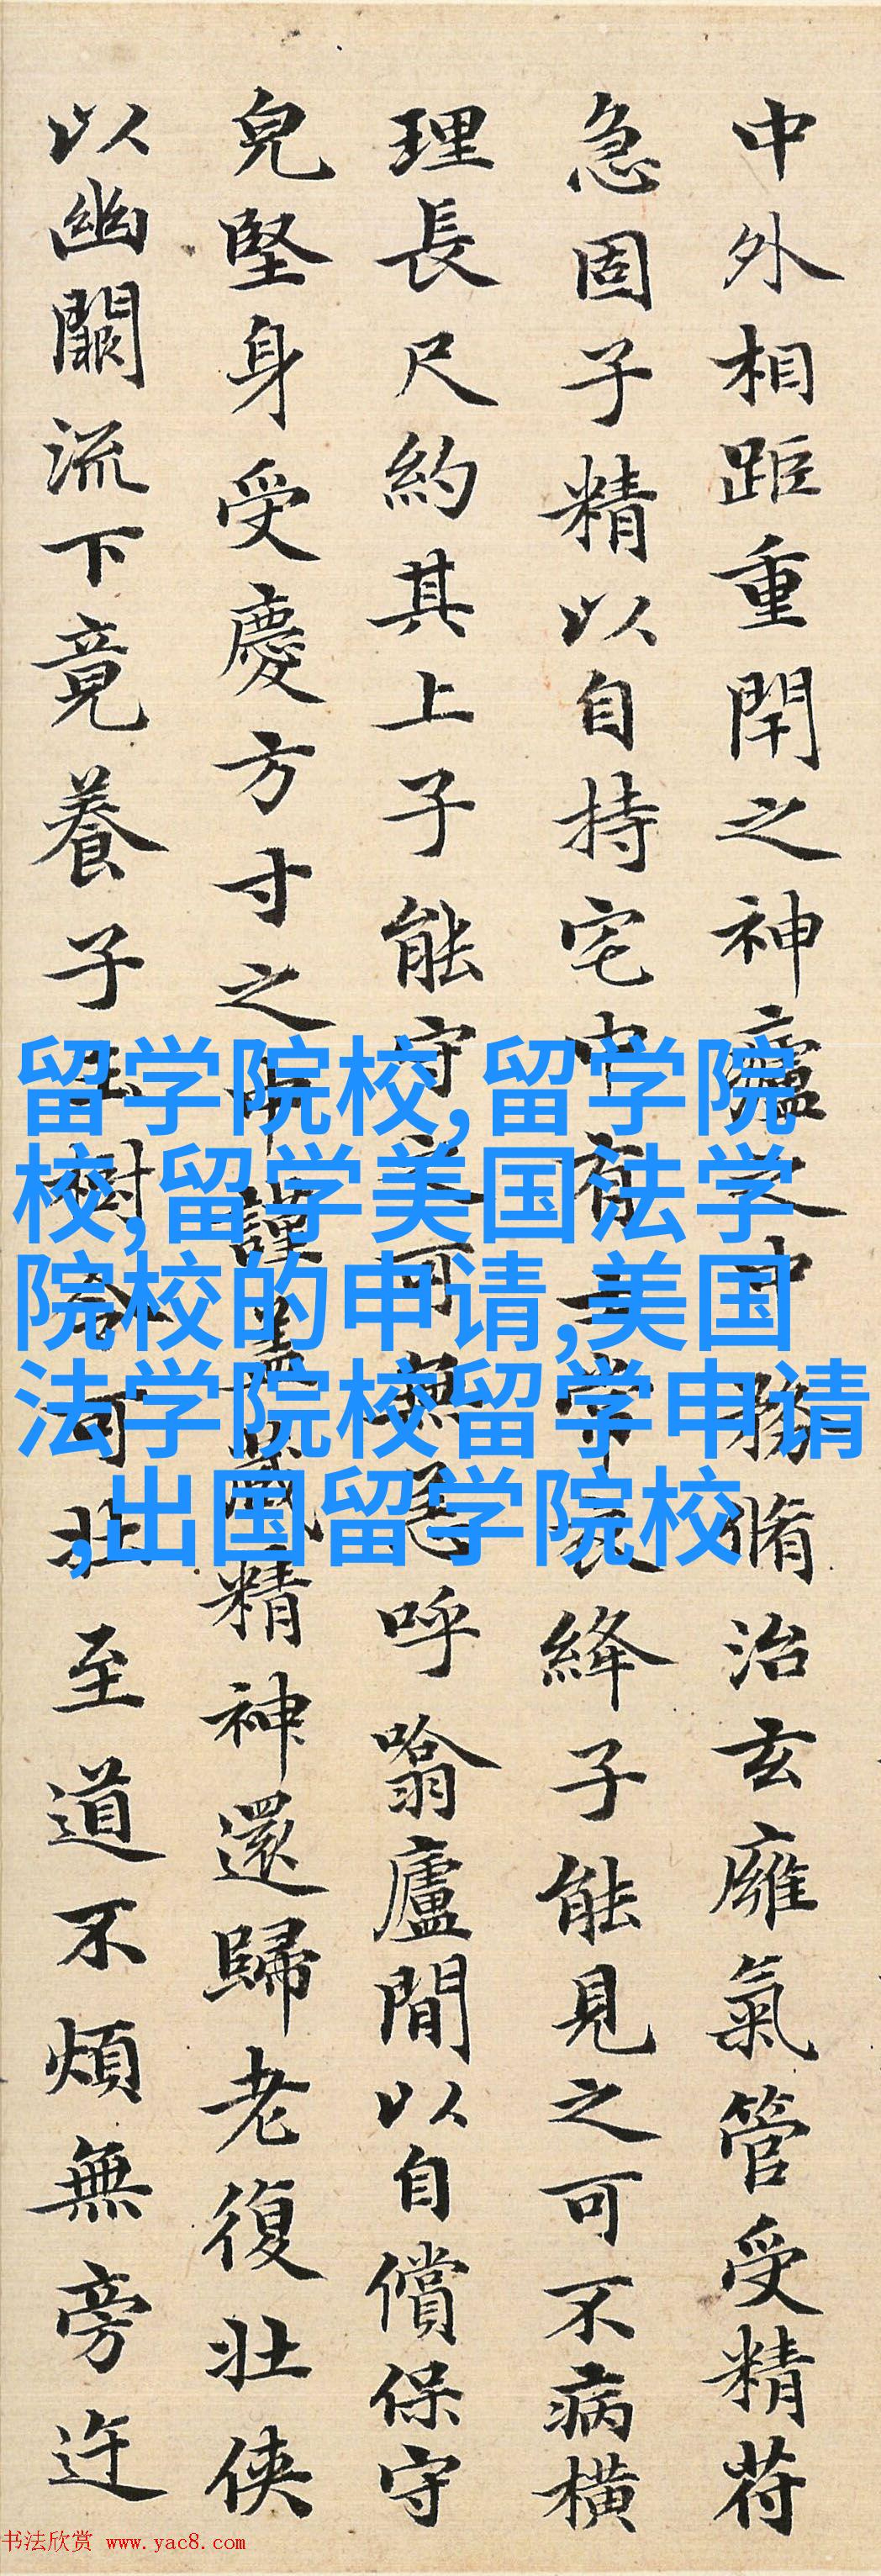 中外相距重閇之神廬之中務脩治玄廱氣管受精苻
急固子精以自持宅中有士常衣絳子能見之可不病橫
理長尺約其上子能守之可無恙呼噏廬間以自償保守
皃堅身受慶方寸之中謹蓋藏精神還歸老復壯俠
以幽闕流下竟養子玉樹令可壯至道不煩無旁迕
留学院校,留学院
校,留学美国法学
院校的申请,美国
法学院校留学申请
,出国留学院校
书法欣赏 www.yac8.com